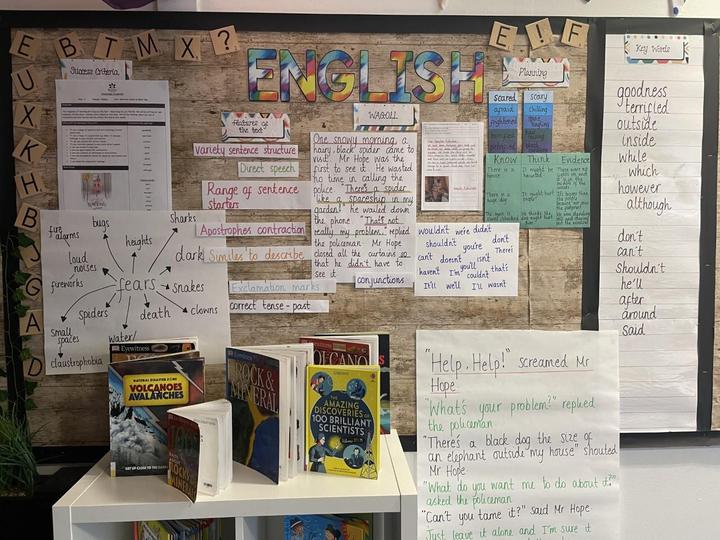 E B T M X ?
E ! F
U
X
K
H
B
J
G
A
D
ENGLISH
Success Criteria
Features of the text
WAGOLL
Planning
Key Words
variety sentence structure
Direct speech
Range of sentence starters
Apostrophes contraction
Similes to describe
Exclamation marks
correct tense - past
conjunctions
One snowy morning, a
hairy, black spider came to
visit. Mr Hope was the
first to see it. He wasted
no time in calling the
police. "There's a spider
like a spaceship in my
garden!" he wailed down
the phone. "That's not
really my problem," replied
the policeman. Mr Hope
closed all the curtains so
that he didn't have to
see it.
scared
afraid
frightened
scary
Know
Think
Evidence
wouldn't we're didn't
shouldn't you're don't
can't doesn't isn't There's
haven't I'm you'll couldn't that's
It'll we'll I'll wasn't
fears
fire alarms
bugs
heights
Sharks
dark
snakes
clowns
death
water
spiders
small spaces
claustrophobia
fireworks
loud noises
goodness
terrified
outside
inside
while
which
however
although
don't
can't
shouldn't
he'll
after
around
said
Eyewitness
NATURAL DISASTER ZONE
VOLCANOES
AVALANCHES
ROCK &
MINERAL
VOLCANO
THE
AMAZING
DISCOVERIES
OF
100 BRILLIANT
SCIENTISTS
"Help, Help!" screamed Mr
Hope
"What's your problem?" replied
the policeman
"There's a black dog the size of
an elephant outside my house" shouted
Mr Hope
"What do you want me to do about it?"
asked the policeman
"Can't you tame it?" said Mr Hope
"Just leave it alone and I'm sure it